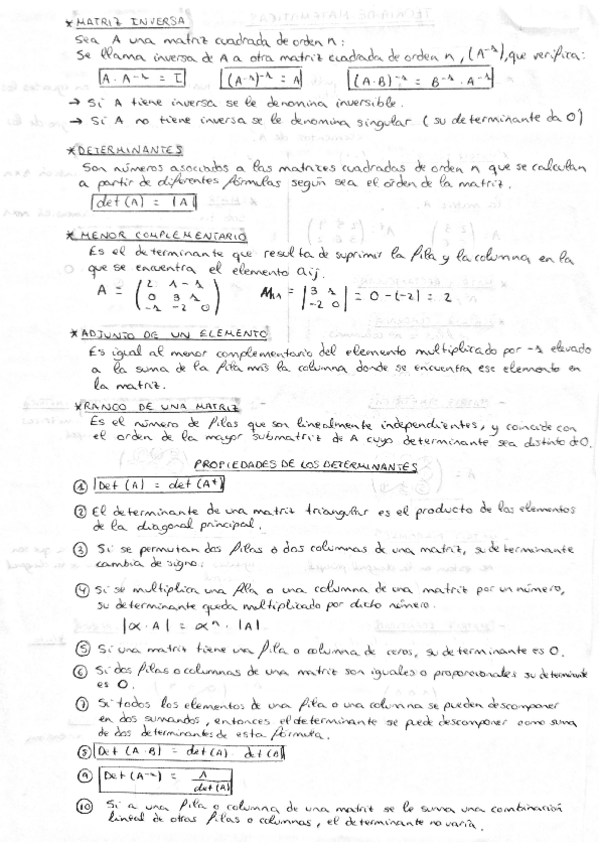 * MATRIZ INVERSA
Sea A una matriz cuadrada de orden n:
Se llama inversa de A a otra matriz cuadrada de orden n, (A⁻¹), que verifica:
A · A⁻¹ = I (A⁻¹)⁻¹ = A (A·B)⁻¹ = B⁻¹ · A⁻¹
→ Si A tiene inversa se le denomina inversible.
→ Si A no tiene inversa se le denomina singular (su determinante da 0)
* DETERMINANTES
Son números asociados a las matrices cuadradas de orden n que se calculan
a partir de diferentes fórmulas según sea el orden de la matriz.
det(A) = |A|
* MENOR COMPLEMENTARIO
Es el determinante que resulta de suprimir la fila y la columna en la
que se encuentra el elemento aij.
A = ( 2 1 -1 / 0 3 1 / -1 -2 0 ) M₁₁ = | 3 1 / -2 0 | = 0 - (-2) = 2
* ADJUNTO DE UN ELEMENTO
Es igual al menor complementario del elemento multiplicado por -1 elevado
a la suma de la fila más la columna donde se encuentra ese elemento en
la matriz.
* RANGO DE UNA MATRIZ
Es el número de filas que son linealmente independientes, y coincide con
el orden de la mayor submatriz de A cuyo determinante sea distinto de 0.
PROPIEDADES DE LOS DETERMINANTES
① Det(A) = det(Aᵗ)
② El determinante de una matriz triangular es el producto de los elementos
de la diagonal principal.
③ Si se permutan dos filas o dos columnas de una matriz, su determinante
cambia de signo.
④ Si se multiplica una fila o una columna de una matriz por un número,
su determinante queda multiplicado por dicho número.
|α · A| = αⁿ · |A|
⑤ Si una matriz tiene una fila o columna de ceros, su determinante es 0.
⑥ Si dos filas o columnas de una matriz son iguales o proporcionales su determinante
es 0.
⑦ Si todos los elementos de una fila o una columna se pueden descomponer
en dos sumandos, entonces el determinante se puede descomponer como suma
de dos determinantes de esta fórmula.
⑧ Det(A · B) = det(A) · det(B)
⑨ Det(A⁻¹) = 1 / det(A)
⑩ Si a una fila o columna de una matriz se le suma una combinación
lineal de otras filas o columnas, el determinante no varía.